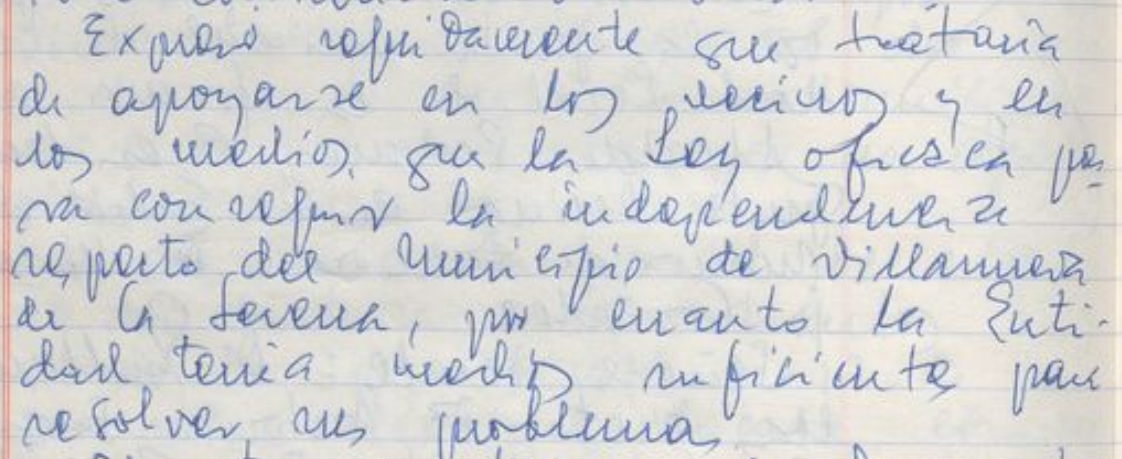 Expresó seguidamente que trataría
de apoyarse en los vecinos y en
los medios que la Ley ofrezca pa-
ra conseguir la independencia
respecto del Municipio de Villanueva
de la Serena, por cuanto la Enti-
dad tenia medios suficientes para
resolver sus problemas